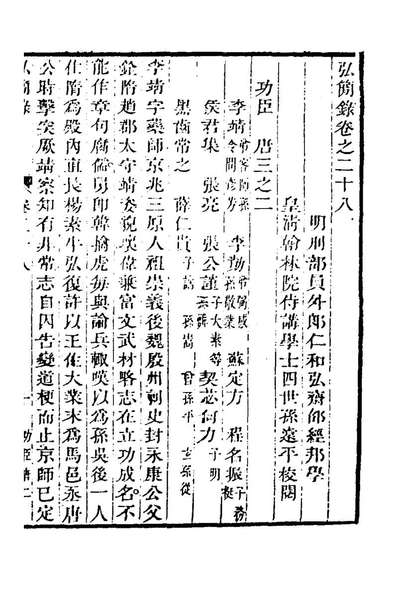 弘簡錄卷之二十八
明刑部員外郎仁和弘齋邵經邦學
皇清翰林院侍講學士四世孫遠平校閱
功臣 唐三之二
李靖 李勣 孫敬業 蘇定方 程名振 子務挺
侯君集 張亮 張公謹 子大素等 契苾何力 子明
黑齒常之 薛仁貴 子訥 孫嵩 曾孫平 玄孫從
李靖字藥師京兆三原人祖崇義後魏殷州刺史封永康公父
詮隋趙郡太守靖姿貌瑰偉兼富文武材略志在立功成名不
能作章句腐儒舅韓擒虎每與論兵輒嘆以為孫吳後一人
仕隋為殿內直長楊素牛弘復許以王佐大業末為馬邑丞唐
公時擊突厥靖察知有非常志自囚告變道梗而止京師已定
弘簡錄 卷二十八 一 功臣諸二